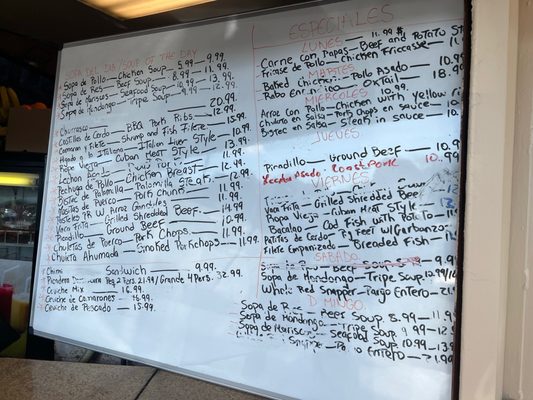 SOPA DEL DIA/SOUP OF THE DAY
Sopa de Pollo — Chicken Soup 5.99 — 9.99.
Sopa de Res — Beef Soup 8.99 — 11.99.
Sopa de Mariscos — Seafood Soup 10.99 — 13.99.
Sopa de Mondongo — Tripe Soup 9.99 — 12.99.
Churrasco — 20.99
Costillas de Cerdo — BBQ Pork Ribs. 12.99.
Camaron y Filete — Shrimp and Fish Filete 15.99.
Higado a la Italiana — Italian Liver Style — 10.99.
Ropa Vieja — Cuban Meat Style — 13.99.
Lechon
Pechuga de Pollo — Chicken Breast
Bistec de Palomilla — Palomilla Steak — 12.99.
Masitas de Puerco — Pork Chunks
Vaca Frita — Grilled Shredded Beef. — 14.99
Picadillo — Ground Beef — 10.99.
Chuletas de Puerco — Pork Chops — 11.99.
Chuleta Ahumada — Smoked Porkchops — 11.99.
Sandwich 9.99.
Peq 2 Pers. 21.99/Grande 4 Pers. 32.99.
Ceviche Mix — 16.99.
Ceviche de Camarones — 16.99.
Ceviche de Pescado — 15.99.
ESPECIALES
LUNES — 11.99 $
Carne con Papas — Beef and Potato
Fricase de Pollo — Chicken Fricasse
MARTES
Baked Chicken — Pollo Asado — 10.99
Rabo Encendido — Oxtail — 18.99
MIERCOLES 10.99
Arroz con Pollo — Chicken with yellow
Chuleta en Salsa — Pork Chops in sauce — 10.99
Bistec en Salsa — Steak in sauce
JUEVES
Picadillo — Ground Beef — 10.99
Lechon Asado — Roast Pork 10.99
VIERNES
Vaca Frita — Grilled Shredded Beef
Ropa Vieja — Cuban Meat Style
Bacalao — Cod Fish with Potato
Patitas de Cerdo — Pig Feet w/Garbanzo
Filete Empanizado — Breaded Fish
SABADO
Beef Soup
Sopa de Mondongo — Tripe Soup
Whole Red Snapper — Pargo Entero
DOMINGO
Sopa de R — Beef Soup 8.99 — 11.99
Sopa de Mondongo — Tripe Soup 9.99 — 12.99
Sopa de Marisco — Seafood Soup 10.99 — 13.99